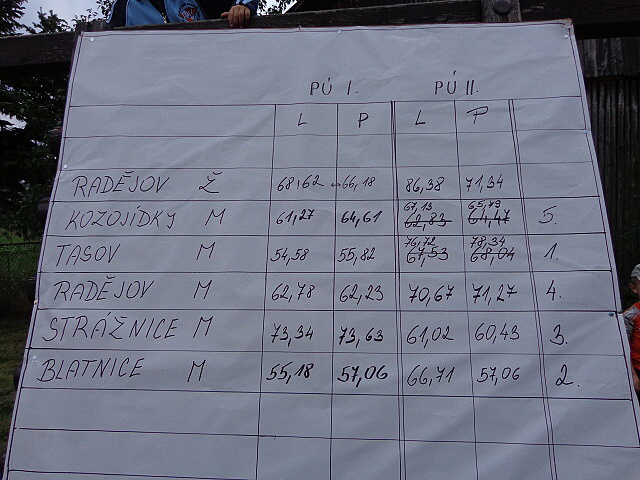 PÚ I. PÚ II.
L P L P
RADĚJOV Ž 68,62 66,18 86,38 71,34
67,13 65,79
KOZOJÍDKY M 61,27 64,61 62,83 64,47 5.
76,72 78,34
TASOV M 54,58 55,82 67,53 68,04 1.
RADĚJOV M 62,78 62,23 70,67 71,27 4.
STRÁŽNICE M 73,34 73,63 61,02 60,43 3.
BLATNICE M 55,18 57,06 66,71 57,06 2.